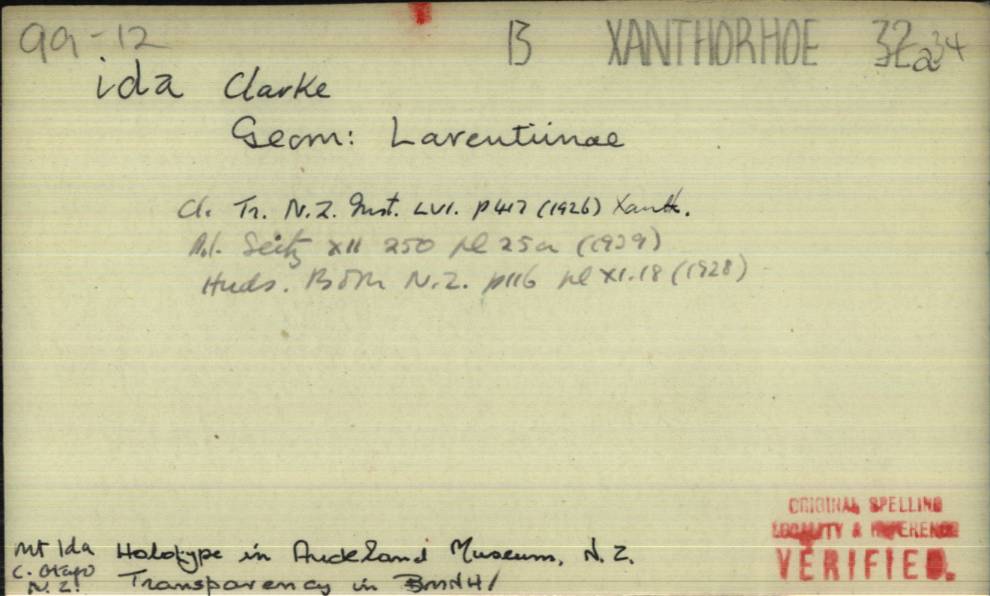 99-12 B XANTHORHOE 32 a 34
ida Clarke
Geom: Larentiinae
Cl. Tr. N.Z. Inst. LVI. p417 (1926) Xanth.
Seitz XII 250 pl 25a (1939)
Huds. BdM N.Z. p116 pl XI.18 (1928)
ORIGINAL SPELLING
LOCALITY & REFERENCE
VERIFIED.
Mt Ida Holotype in Auckland Museum, N.Z.
C. Otago
N.Z. Transparency in BMNH/